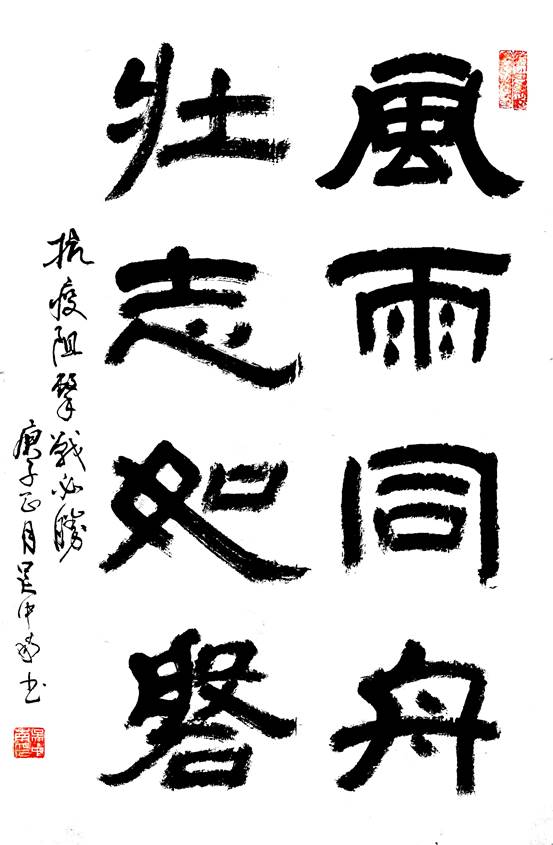 風雨同舟
壯志如磐
抗疫阻擊戰必勝
庚子正月吳中南书